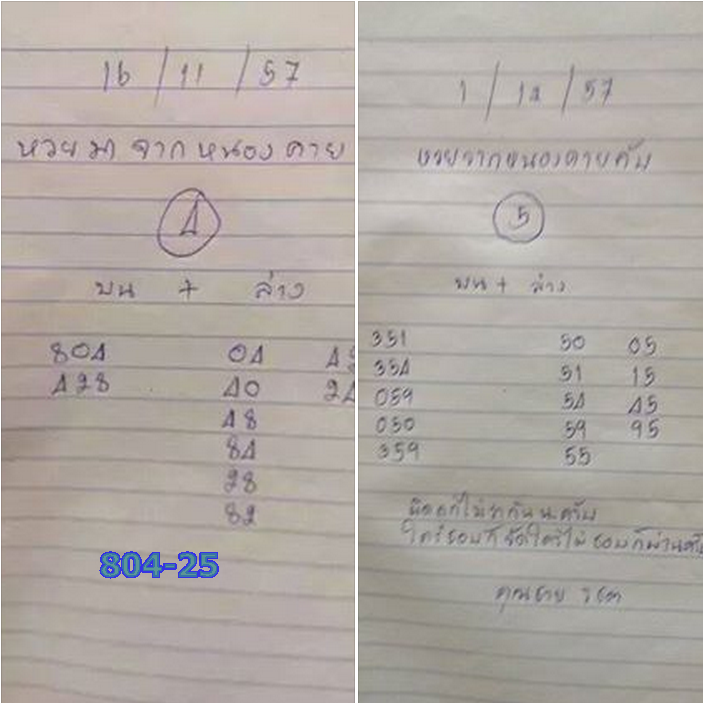 16 / 11 / 57
หวยมา จาก หนองคาย
4
บน + ล่าง
804 04
428 40 24
48
84
28
82
804-25
1 / 12 / 57
หวยจากหนองคายคับ
5
บน + ล่าง
351 50 05
354 51 15
059 54 45
050 59 95
359 55
ผิดถูกไม่ว่ากันนะครับ
ใครชอบก็จัดใครไม่ชอบก็ผ่านครับ
คุณชาย